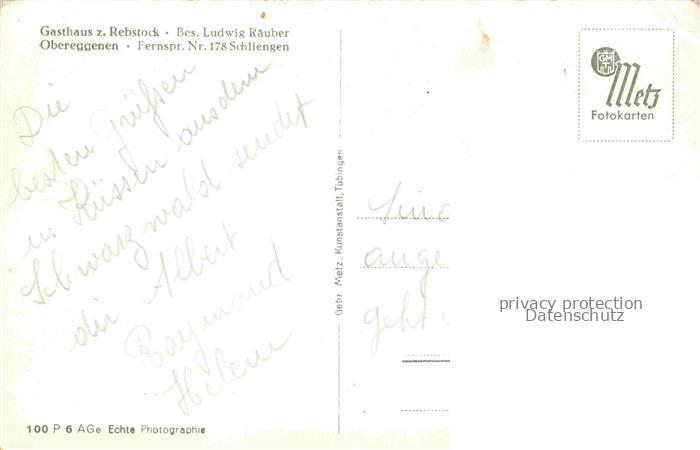 Gasthaus z. Rebstock · Bes. Ludwig Räuber
Obereggenen · Fernspr. Nr. 178 Schliengen
Die
besten Grüßen
u. Küssen aus dem
Schwarzwald sendet
dir Albert
Raymund
Helene
Gebr. Metz, Kunstanstalt, Tübingen
GMT
Metz
Fotokarten
Sind
ange
geht
privacy protection
Datenschutz
100 P 6 AGe Echte Photographie